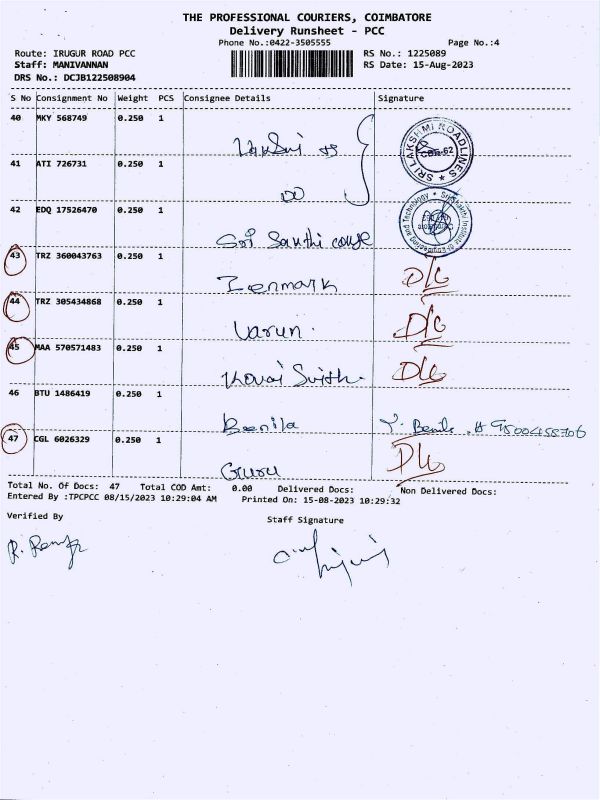 THE PROFESSIONAL COURIERS, COIMBATORE
Delivery Runsheet - PCC
Phone No.:0422-3505555 Page No.:4
Route: IRUGUR ROAD PCC RS No.: 1225089
Staff: MANIVANNAN RS Date: 15-Aug-2023
DRS No.: DCJB122508904
S No Consignment No Weight PCS Consignee Details Signature
40 MKY 568749 0.250 1
SRI LAKSHMI ROADLINES
CBE-62
41 ATI 726731 0.250 1
42 EDQ 17526470 0.250 1
Sri Santhi
43 TRZ 360043763 0.250 1
Denmark D/C
44 TRZ 305434868 0.250 1
Varun. D/C
45 MAA 570571483 0.250 1
Kovai D/C
46 BTU 1486419 0.250 1
Benila
47 CGL 6026329 0.250 1
Guru D/C
Total No. Of Docs: 47 Total COD Amt: 0.00 Delivered Docs: Non Delivered Docs:
Entered By :TPCPCC 08/15/2023 10:29:04 AM Printed On: 15-08-2023 10:29:32
Verified By Staff Signature